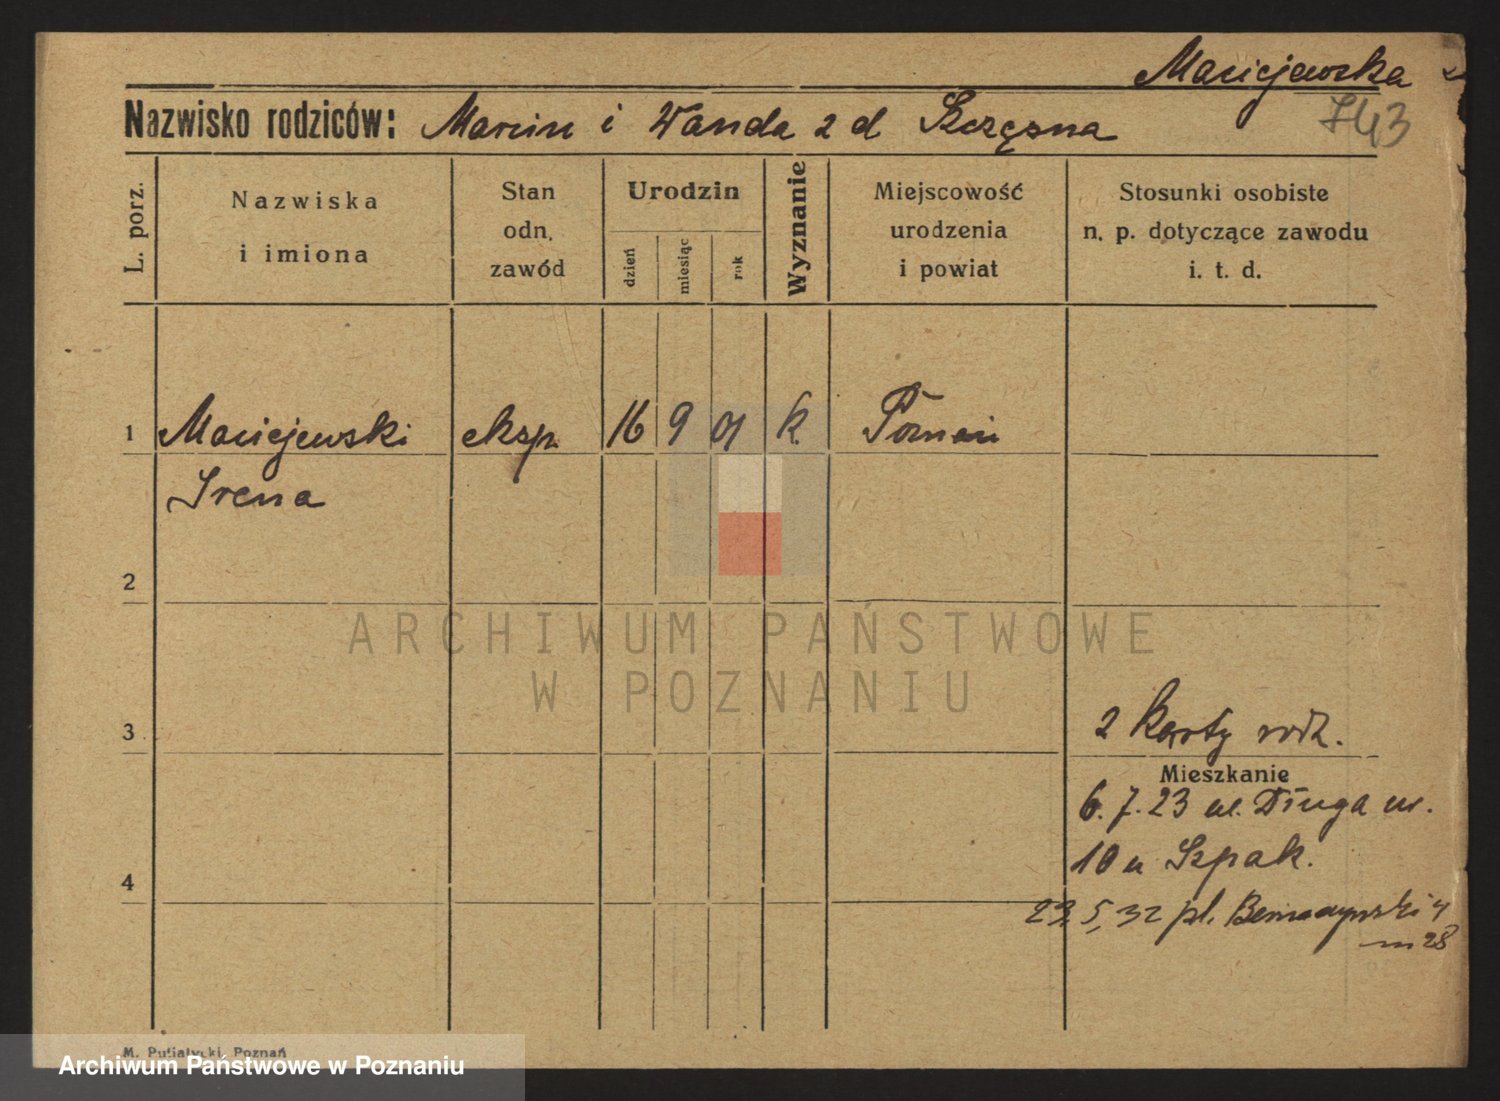 Maciejewska
743
Nazwisko rodziców: Marcin i Wanda 2 d Szczęsna
L. porz.
Nazwiska
i imiona
Stan
odn.
zawód
Urodzin
dzień
miesiąc
rok
Wyznanie
Miejscowość
urodzenia
i powiat
Stosunki osobiste
n. p. dotyczące zawodu
i. t. d.
1 Maciejewski eksp. 16 9 01 k. Poznań
Irena
2
3
2 karty rodz.
Mieszkanie
6.7.23 ul. Długa nr.
10 u Szpak.
4
23.5.32 pl. Bernardyński 4
m 28
ARCHIWUM PAŃSTWOWE
W POZNANIU
M. Putiatycki, Poznań
Archiwum Państwowe w Poznaniu